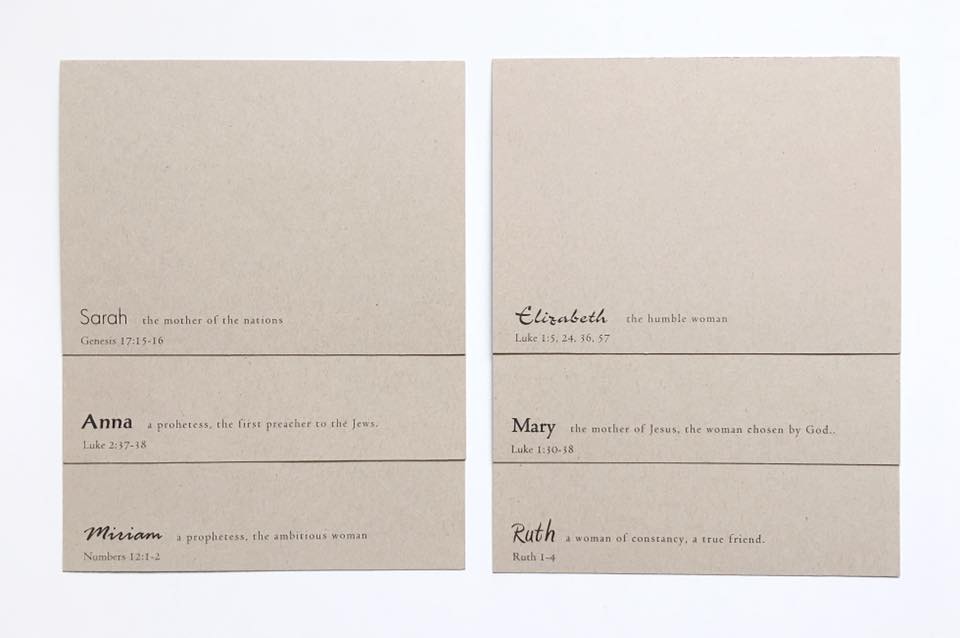 Sarah the mother of the nations
Genesis 17:15-16
Anna a prohetess, the first preacher to the Jews.
Luke 2:37-38
Miriam a prophetess, the ambitious woman
Numbers 12:1-2
Elizabeth the humble woman
Luke 1:5, 24, 36, 57
Mary the mother of Jesus, the woman chosen by God..
Luke 1:30-38
Ruth a woman of constancy, a true friend.
Ruth 1-4